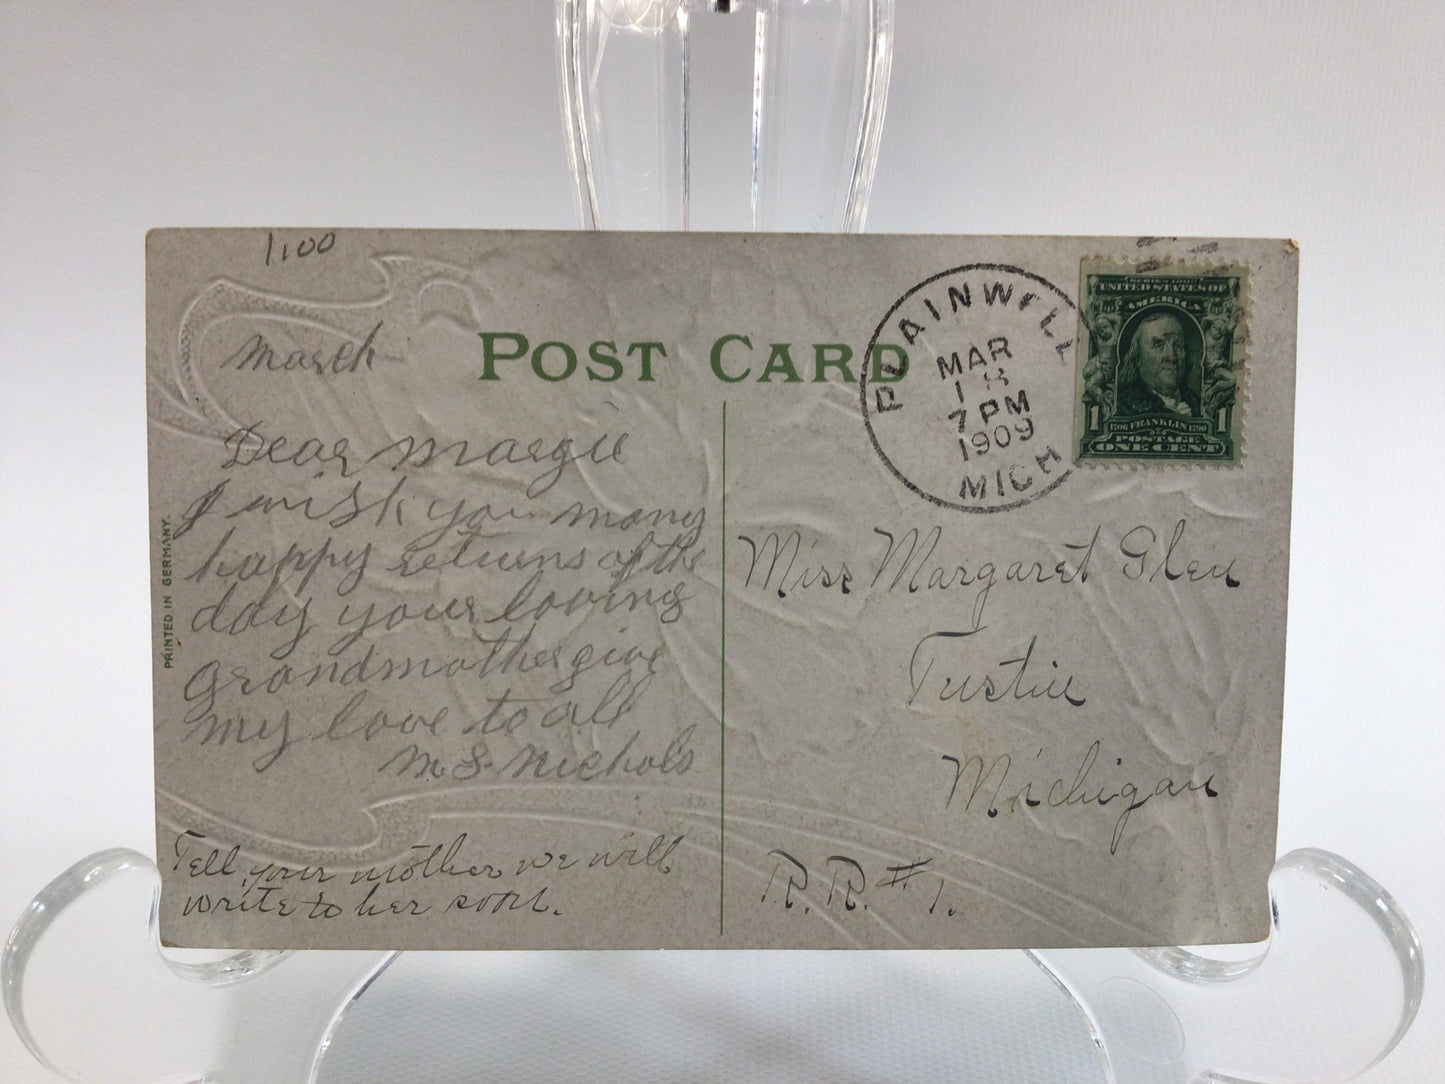 1.00
March
POST CARD
PLAINWELL
MAR
18
7 PM
1909
MICH
SERIES 1902
UNITED STATES OF
AMERICA
1 1706 FRANKLIN 1790 1
POSTAGE
ONE CENT
PRINTED IN GERMANY.
Dear Margie
I wish you many
happy returns of the
day your loving
Grandmother give
my love to all
M. S. Nichols
Tell your mother we will
write to her soon.
Miss Margaret Glen
Tustin
Michigan
R.R. #1.